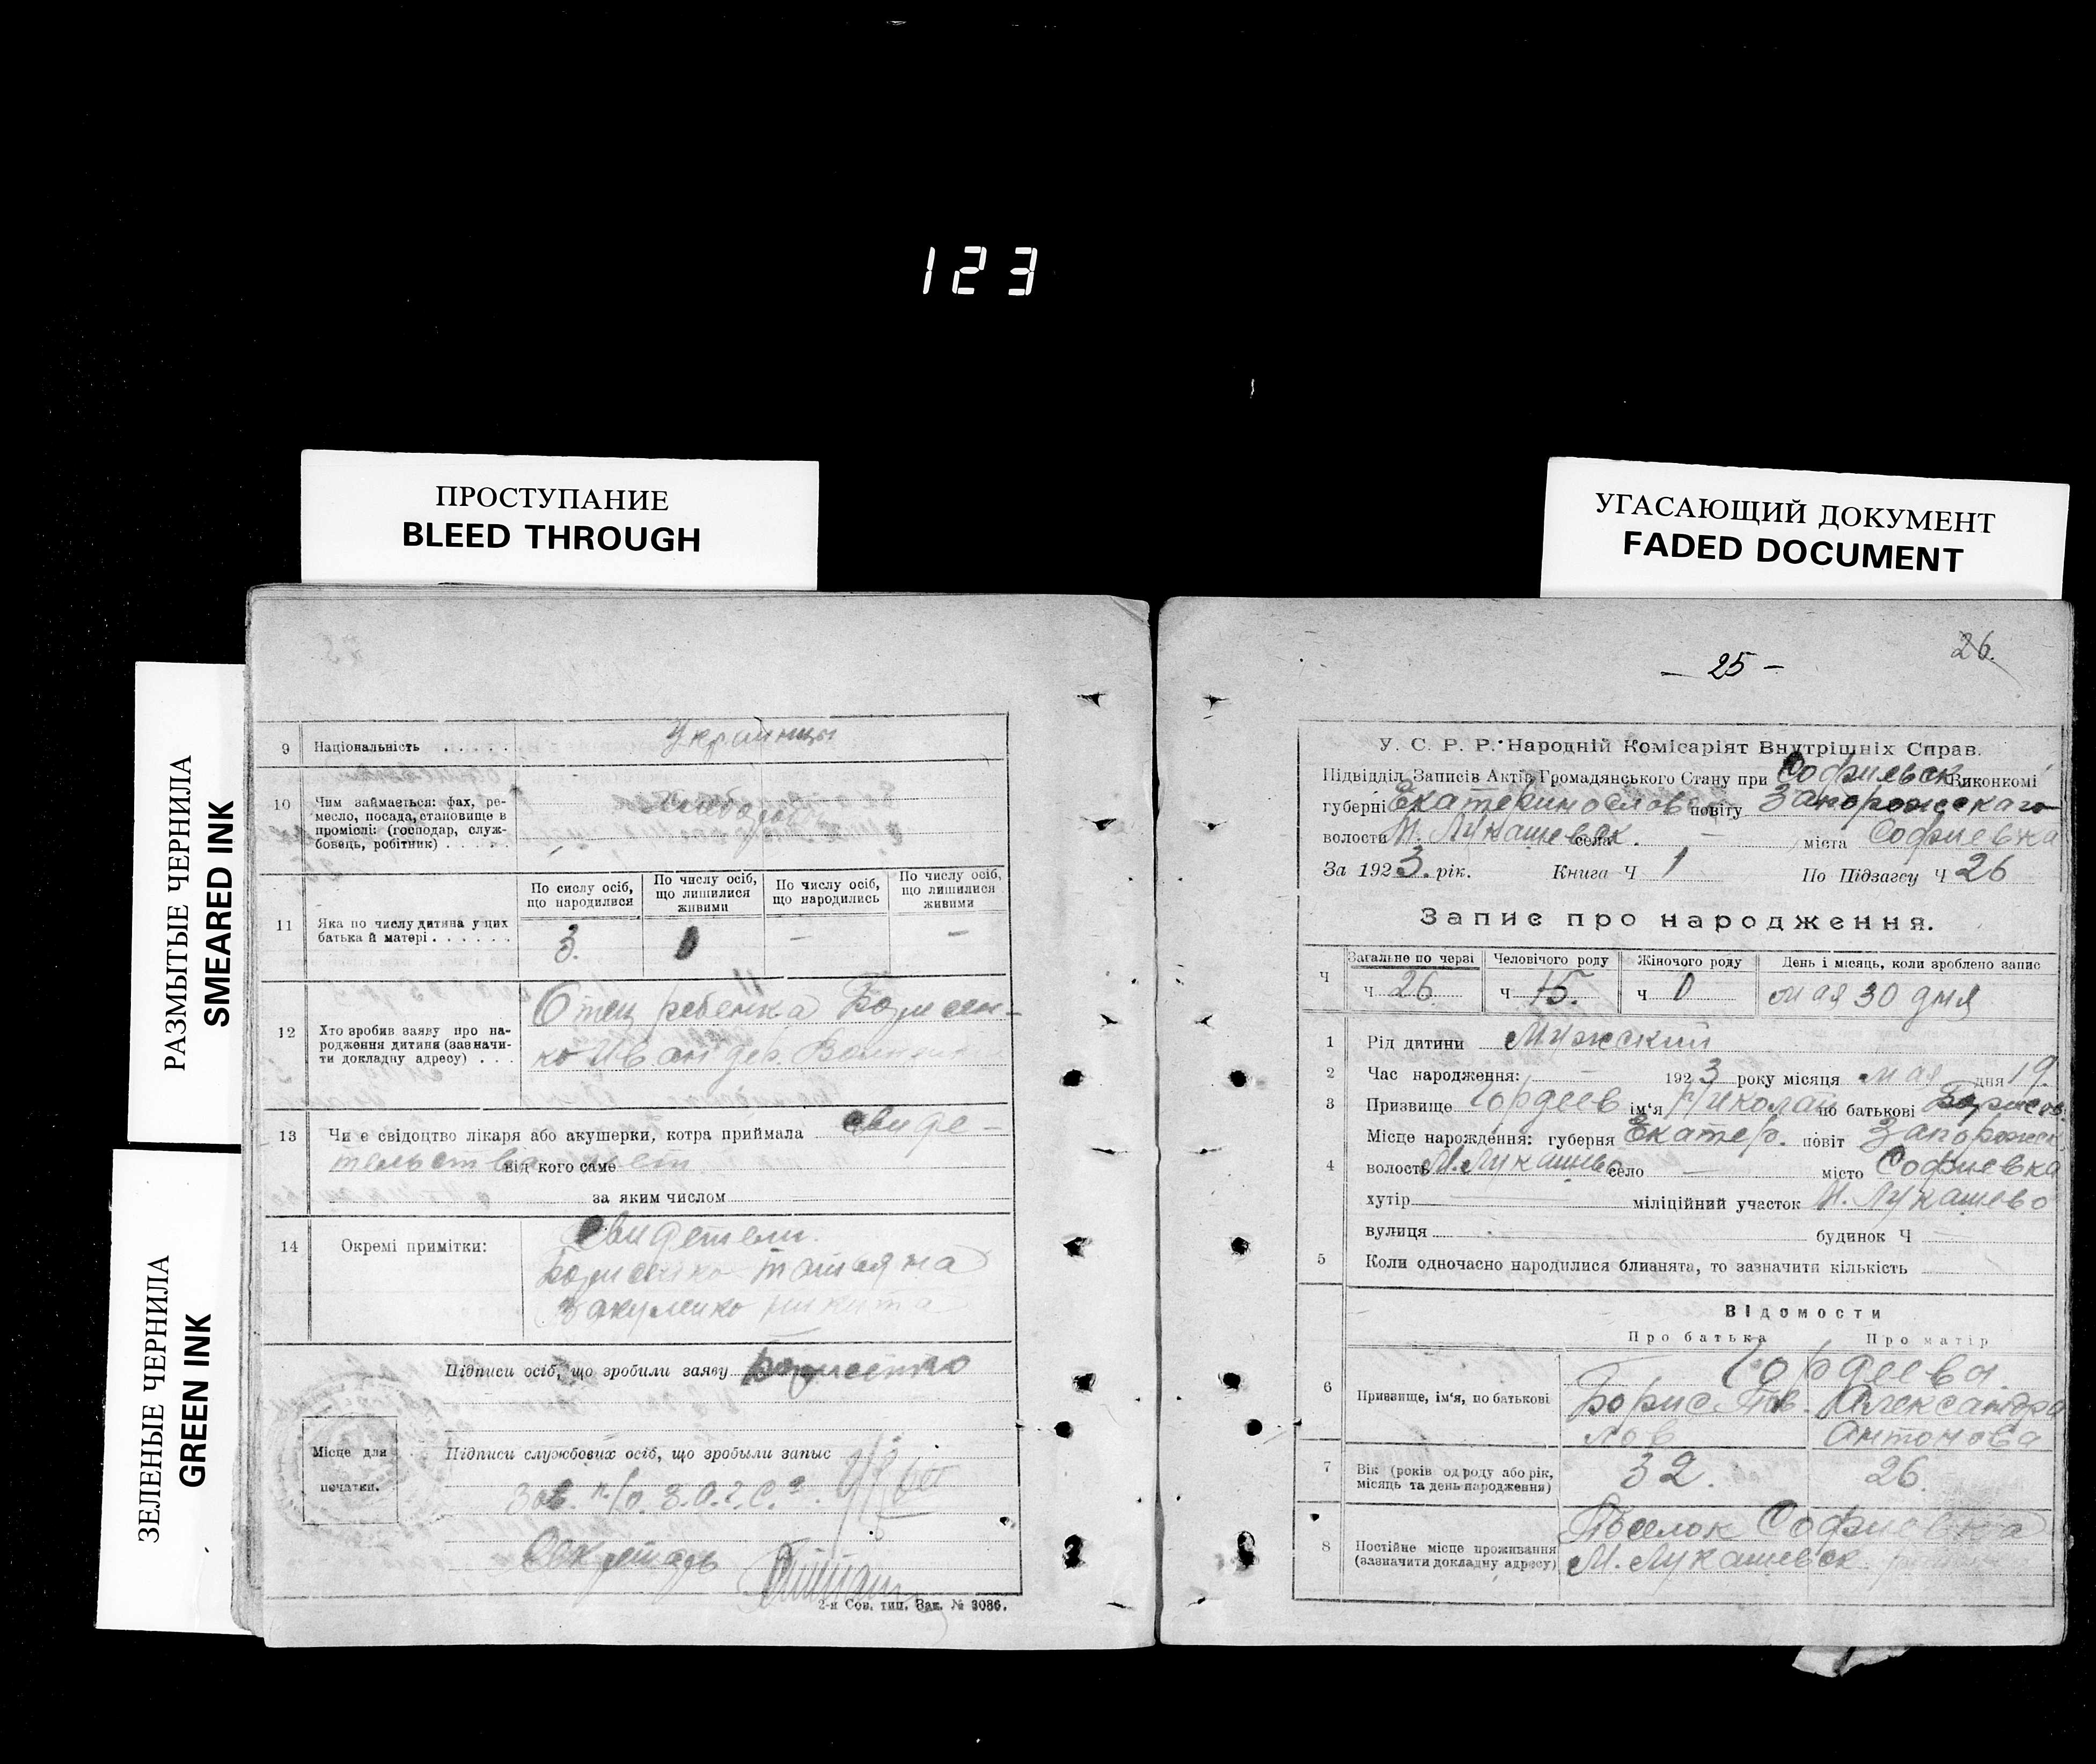 123
ПРОСТУПАНИЕ
BLEED THROUGH
УГАСАЮЩИЙ ДОКУМЕНТ
FADED DOCUMENT
РАЗМЫТЫЕ ЧЕРНИЛА
SMEARED INK
ЗЕЛЕНЫЕ ЧЕРНИЛА
GREEN INK
9 Національність . . . . . Украинцы
10 Чим займається: фах, ре-
месло, посада, становище в
промислі: (господар, служ-
бовець, робітник) . . . . .
По сислу осіб, що народилися
По числу осіб, що лишилися живими
По числу осіб, що народились
По числу осіб, що лишилися живими
11 Яка по числу дитина у цих
батька й матері . . . . . . 3. 0 — —
12 Хто зробив заяву про на-
родження дитини (зазначи-
ти докладну адресу) . . .
Отец ребенка
Иван дер.
13 Чи є свідоцтво лікаря або акушерки, котра приймала свиде-
тельства від кого саме нет
за яким числом
14 Окремі примітки: Свидетели.
Татьяна
Никита
Підписи осіб, що зробили заяву
Місце для
печатки.
Підписи службових осіб, що зробыли запыс
Зав. п/о. З.А.Г.С.а.
Секретарь
2-я Сов. тип. Зак. № 3086.
— 25 —
26.
У. С. Р. Р. Народній Комісаріят Внутрішніх Справ.
Підвідділ Записів Актів Громадянського Стану при Софиевск Виконкомі
губерні Екатеринослов повіту Запорожскаго
волости М. Лукашевск. села — міста Софиевка
За 1923. рік. Книга Ч 1 По Підзагсу Ч 26
Запис про народження.
Ч Загальне по черзі Человічого роду Жіночого роду День і місяць, коли зроблено запис
ч 26 ч 15. ч 0 мая 30 дня
1 Рід дитини Мужский
2 Час народження: 1923 року місяця мая дня 19.
3 Призвище Гордеев ім'я Николай по батькові Борисов.
Місце нарождення: губерня Екатер. повіт Запорожск
4 волость М. Лукашево село — місто Софиевка
хутір міліційний участок М. Лукашево
вулиця будинок Ч
5 Коли одночасно народилися близнята, то зазначити кількість
Відомости
Про батька Про матір
Гордеева
6 Призвище, ім'я, по батькові Борис Пав- Александра
лов Антонова
7 Вік (років од роду або рік,
місяць та день народження) 32. 26.
8 Постійне місце проживання
(зазначити докладну адресу)
Поселок Софиевка
М. Лукашевск